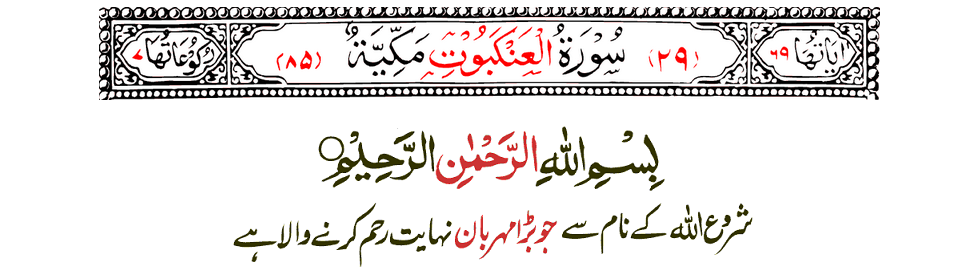 اٰیَاتُهَا ٦٩ (٢٩) سُوْرَةُ الْعَنْكَبُوْتِ مَكِّيَّةٌ (٨٥) رُكُوْعَاتُهَا ٧
بِسْمِ اللّٰهِ الرَّحْمٰنِ الرَّحِيْمِ○
شروع اللہ کے نام سے جو بڑا مہربان نہایت رحم کرنے والا ہے